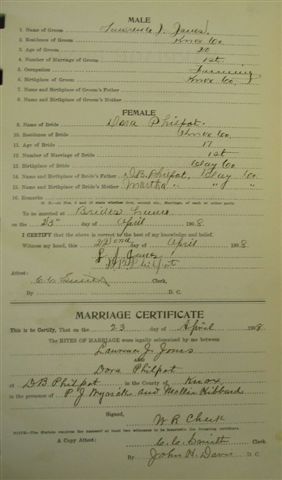 MALE
1. Name of Groom Lawrence J. Jones
2. Residence of Groom Knox Co.
3. Age of Groom 20
4. Number of Marriage of Groom 1st
5. Occupation Farming
6. Birthplace of Groom Knox Co.
7. Name and Birthplace of Groom's Father
8. Name and Birthplace of Groom's Mother
FEMALE
9. Name of Bride Dora Philpot
10. Residence of Bride Knox Co.
11. Age of Bride 17
12. Number of Marriage of Bride 1st
13. Birthplace of Bride Clay Co.
14. Name and Birthplace of Bride's Father D.B. Philpot, Clay Co.
15. Name and Birthplace of Bride's Mother Martha " " "
16. Remarks
To be married at Brides House
on the 23" day of April 1908
I CERTIFY that the above is correct to the best of my knowledge and belief.
Witness my hand, this 22nd day of April 1908
L J Jones
D B Philpot
Attest:
C. C. Smith Clerk,
By D. C.
MARRIAGE CERTIFICATE
This is to Certify, That on the 23 day of April 1908
the RITES OF MARRIAGE were legally solemnized by me between
Lawrence J. Jones
and
Dora Philpot
at D B Philpot in the County of Knox
in the presence of P. J. and Hibbard
Signed,
W R Cheek
A Copy Attest: C. C. Smith Clerk
By John H. Davis D. C.